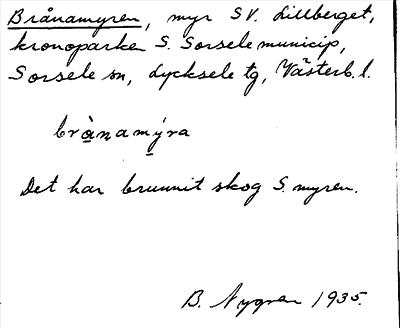 Brånamyren, myr SV. Lillberget,
kronoparken S. Sorsele municip,
Sorsele sn, Lycksele tg, Västerb. l.
brànamýra
Det har brunnit skog S. myren.
B. Nygren 1935.